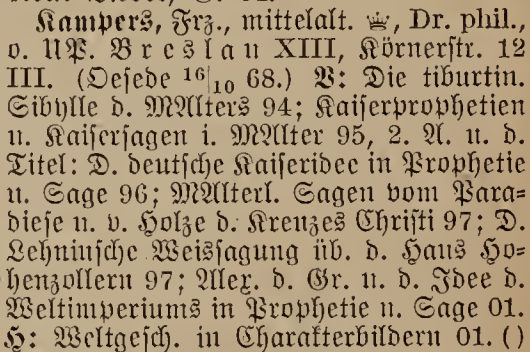 Kampers, Frz., mittelalt. ♔, Dr. phil.,
o. UP. Breslau XIII, Körnerstr. 12
III. (Oesede 16|10 68.) V: Die tiburtin.
Sibylle d. MAlters 94; Kaiserprophetien
u. Kaisersagen i. MAlter 95, 2. A. u. d.
Titel: D. deutsche Kaiseridee in Prophetie
u. Sage 96; MAlterl. Sagen vom Para=
diese u. v. Holze d. Kreuzes Christi 97; D.
Lehninsche Weissagung üb. d. Haus Ho=
henzollern 97; Alex. d. Gr. u. d. Idee d.
Weltimperiums in Prophetie u. Sage 01.
H: Weltgesch. in Charakterbildern 01. ()